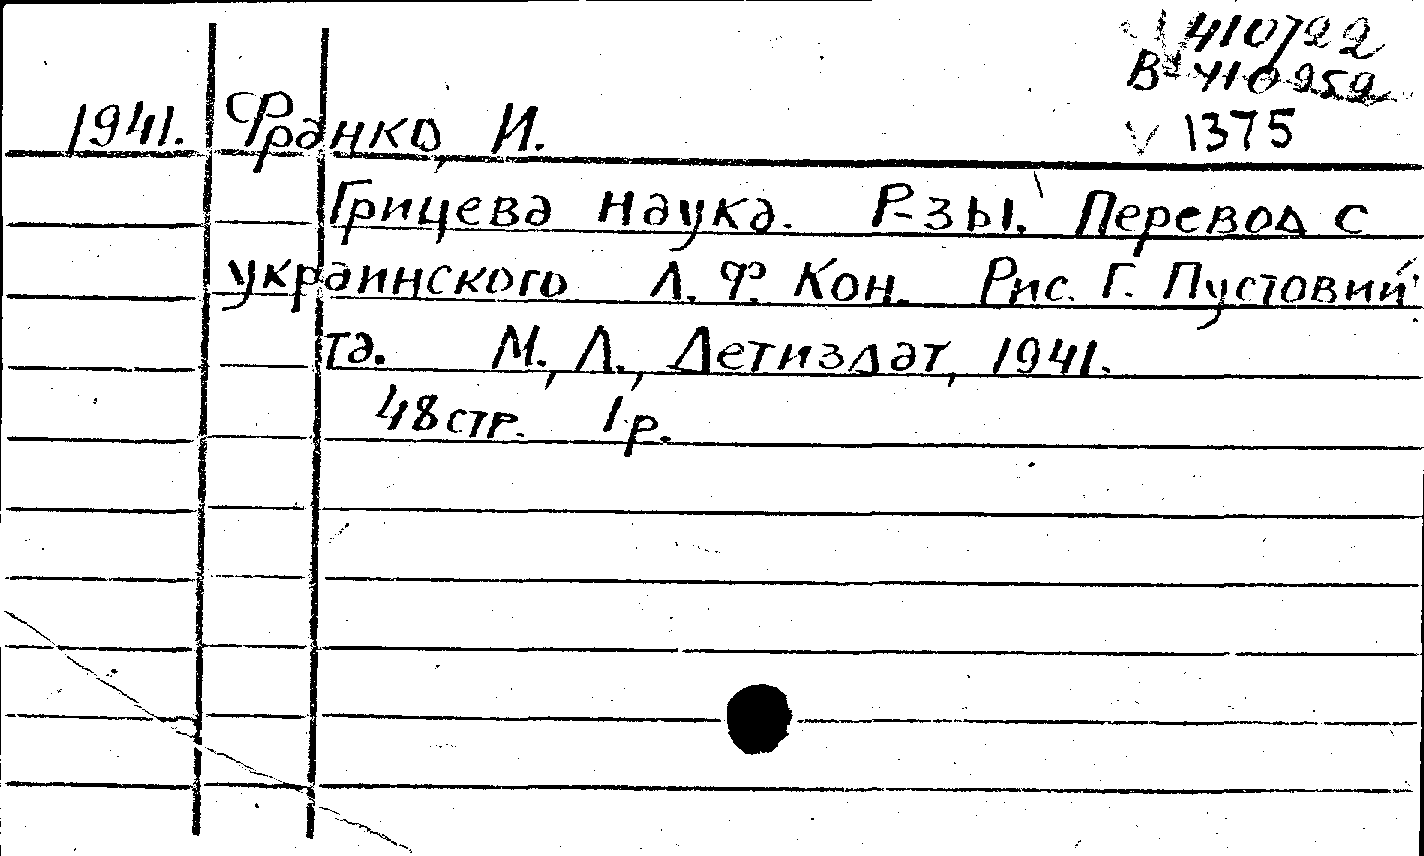 V 410722
В 410252
V 1375
1941. Франко, И.
Грицева наука. Р-зы. Перевод с
украинского Л. Ф. Кон. Рис. Г. Пустовий
та. М., Л., Детиздат, 1941.
48 стр. 1 р.